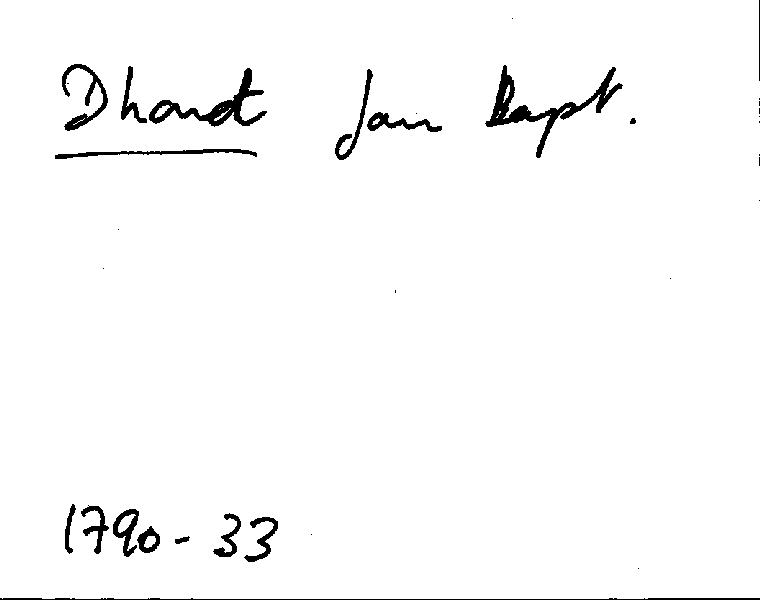 Dhondt Jan Bapt.
1790-33